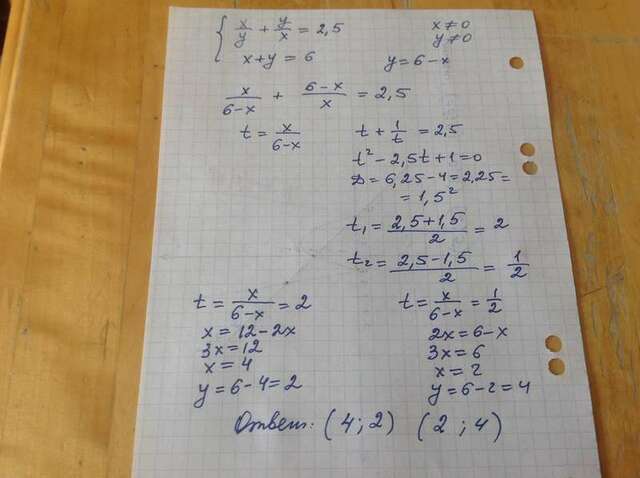 { x/y + y/x = 2,5    x ≠ 0
y ≠ 0
x + y = 6    y = 6 - x
x/(6-x) + (6-x)/x = 2,5
t = x/(6-x)    t + 1/t = 2,5
t² - 2,5t + 1 = 0
D = 6,25 - 4 = 2,25 =
= 1,5²
t₁ = (2,5+1,5)/2 = 2
t₂ = (2,5-1,5)/2 = 1/2
t = x/(6-x) = 2    t = x/(6-x) = 1/2
x = 12 - 2x    2x = 6 - x
3x = 12    3x = 6
x = 4    x = 2
y = 6 - 4 = 2    y = 6 - 2 = 4
Ответ: (4; 2) (2; 4)